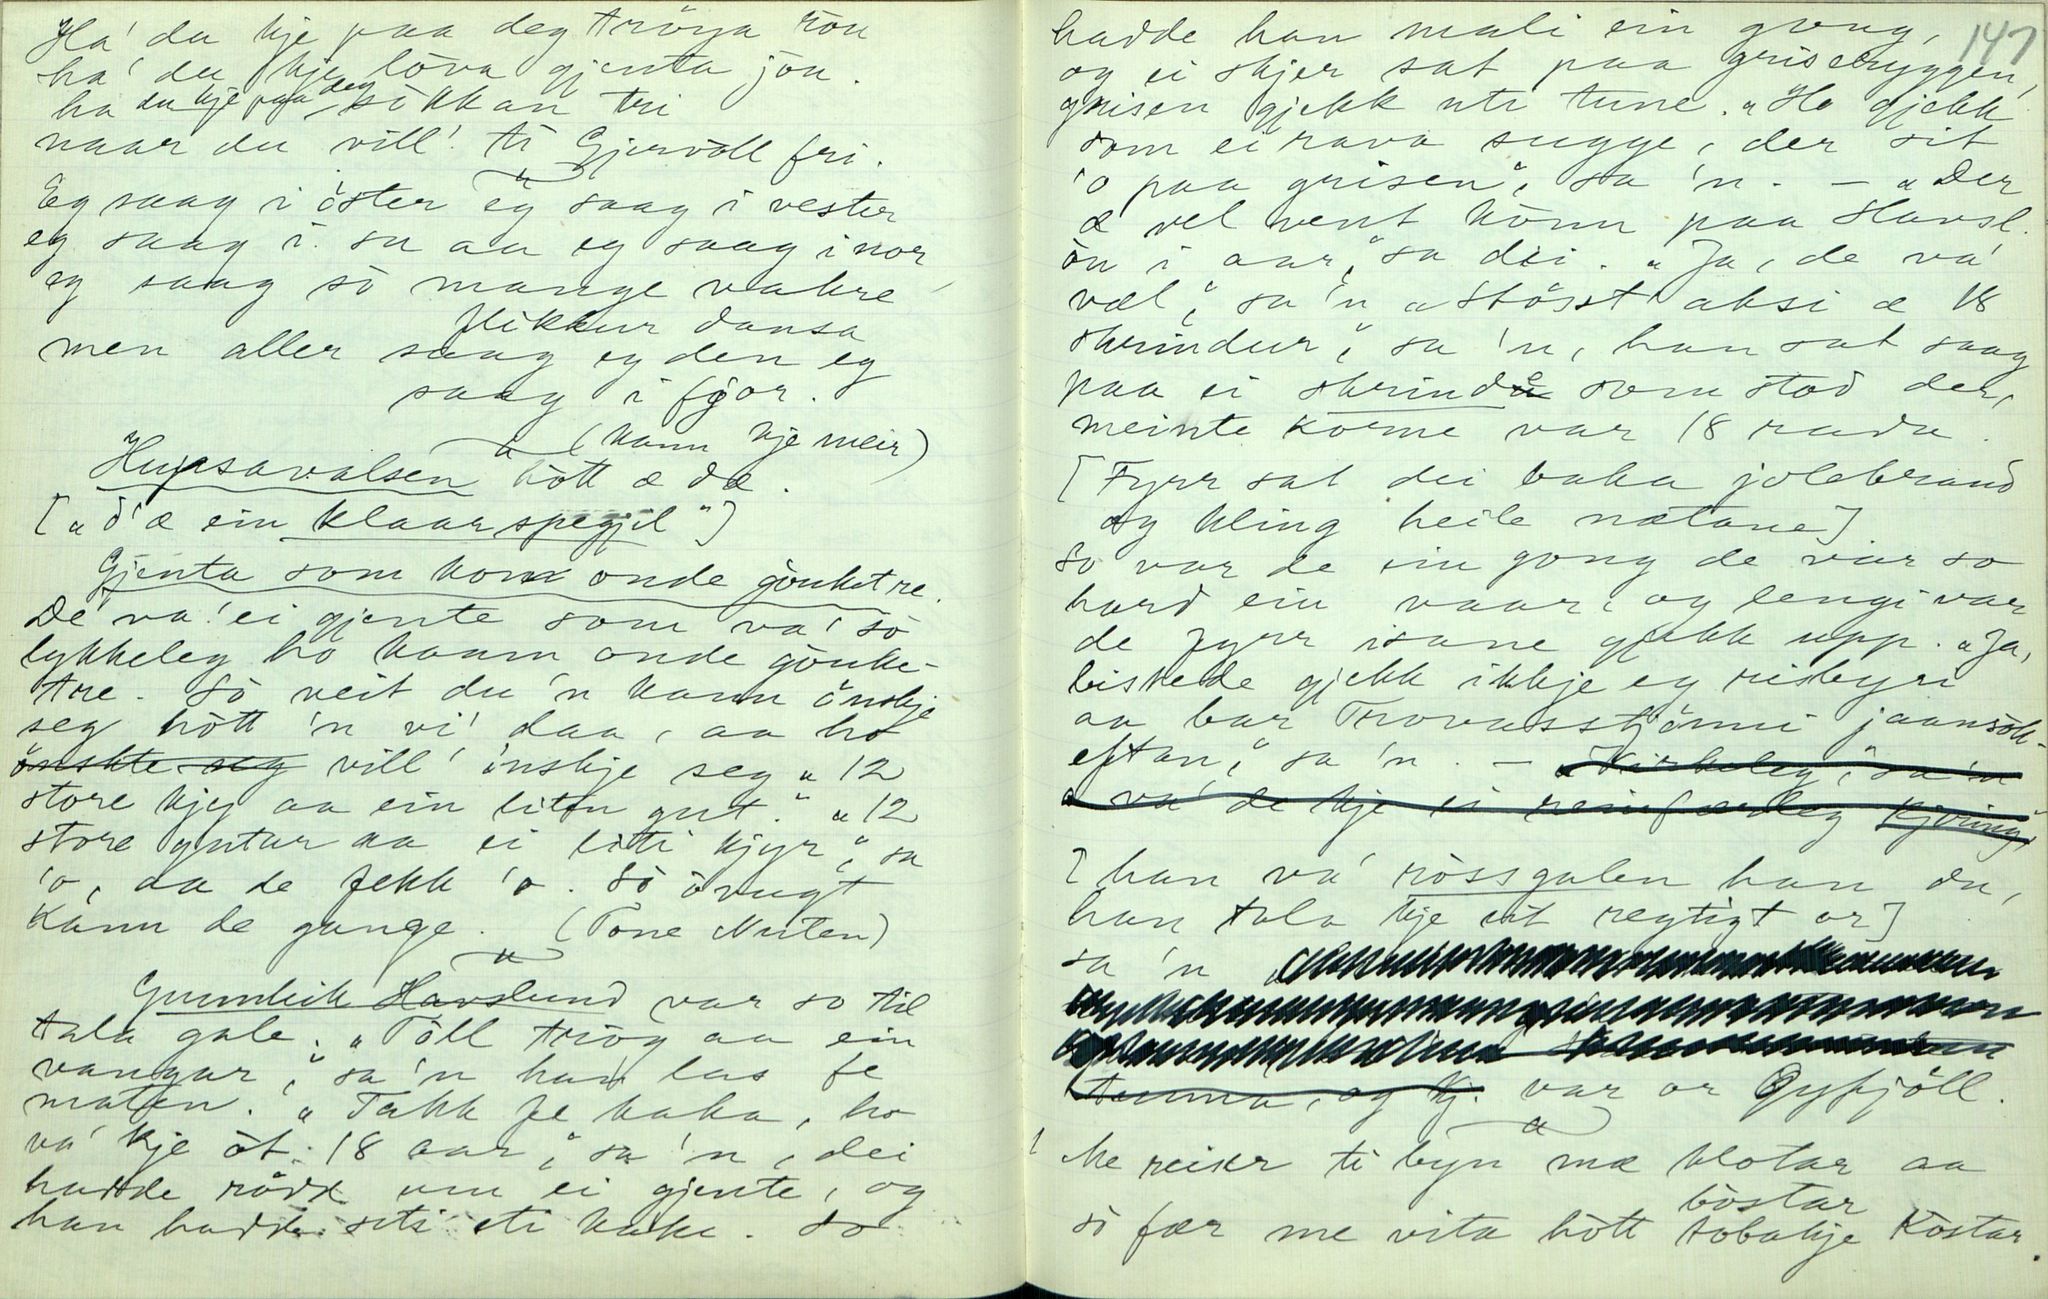 Ha' du kje paa deg tröya rön
ha' du kje löva gjenta jön.
ha du kje paa deg sökkan tri
naar du vill' ti Gjervöll fri.
Eg saag i öster eg saag i vester
eg saag i su aa eg saag i nor
eg saag sö mange vakre
flikkur dansa
men aller saag eg den eg
saag i fjor.
(kann kje meir)
Hupsavalsen hött æ dæ.
[„d'æ ein klaar spegjil"]
Gjenta som kom onde gönketre.
De va' ei gjente som va' sö
lykkeleg ho kaam onde gönke-
tre. Sö veit du 'n kann önskje
seg hött 'n vi' daa, aa ho
önskte seg vill' önskje seg „12
store kjy aa ein liten gut." „12
store gutar aa ei liti kjyr", sa
'o, aa de fekk 'o. Sö övugt
kann de gange. (Tone Nuten)
Gunnleik Havslund var so til
tala gale. „Töll trög aa ein
vangar", sa 'n han las fe
maten. „Takk fe kaka, ho
va' kje öt. 18 aar", sa 'n, dei
hadde rödd um ei gjente, og
han hadde seti eti kake. So
147
hadde han mali ein gong,
og ei skjer sat paa griseryggen,
grisen gjekk uti tune. „Ho gjekk
som ei rava sugge, der sit
'o paa grisen", sa 'n. – „Der
æ vel vent könn paa Havsl.
ön i aar," sa dei. „Ja, de va'
væl", sa 'n „Stösst aksi æ 18
skrindur", sa 'n, han sat saag
paa ei skrinda som stod der,
meinte korne var 18 rada.
[Fyrr sat dei baka jolebrand
og kling heile nætane]
So var de ein gong de var so
hard ein vaar, og lengi var
de fyrr isane gjekk upp. „Ja,
leistede gjekk ikkje eg
aa bar Trovasstjönni jaansök-
eftan", sa 'n. – „Virkeleg", sa 'n
„va' de kje ei reinfærdeg kjöring"
[han va' rössgalen han du,
han tala kje eit regtigt or]
sa 'n
tunna, og kj. var or Öyfjöll.
Me reiser ti byn mæ klotar aa
böstar
sö fær me vita hött tobakje kostar.